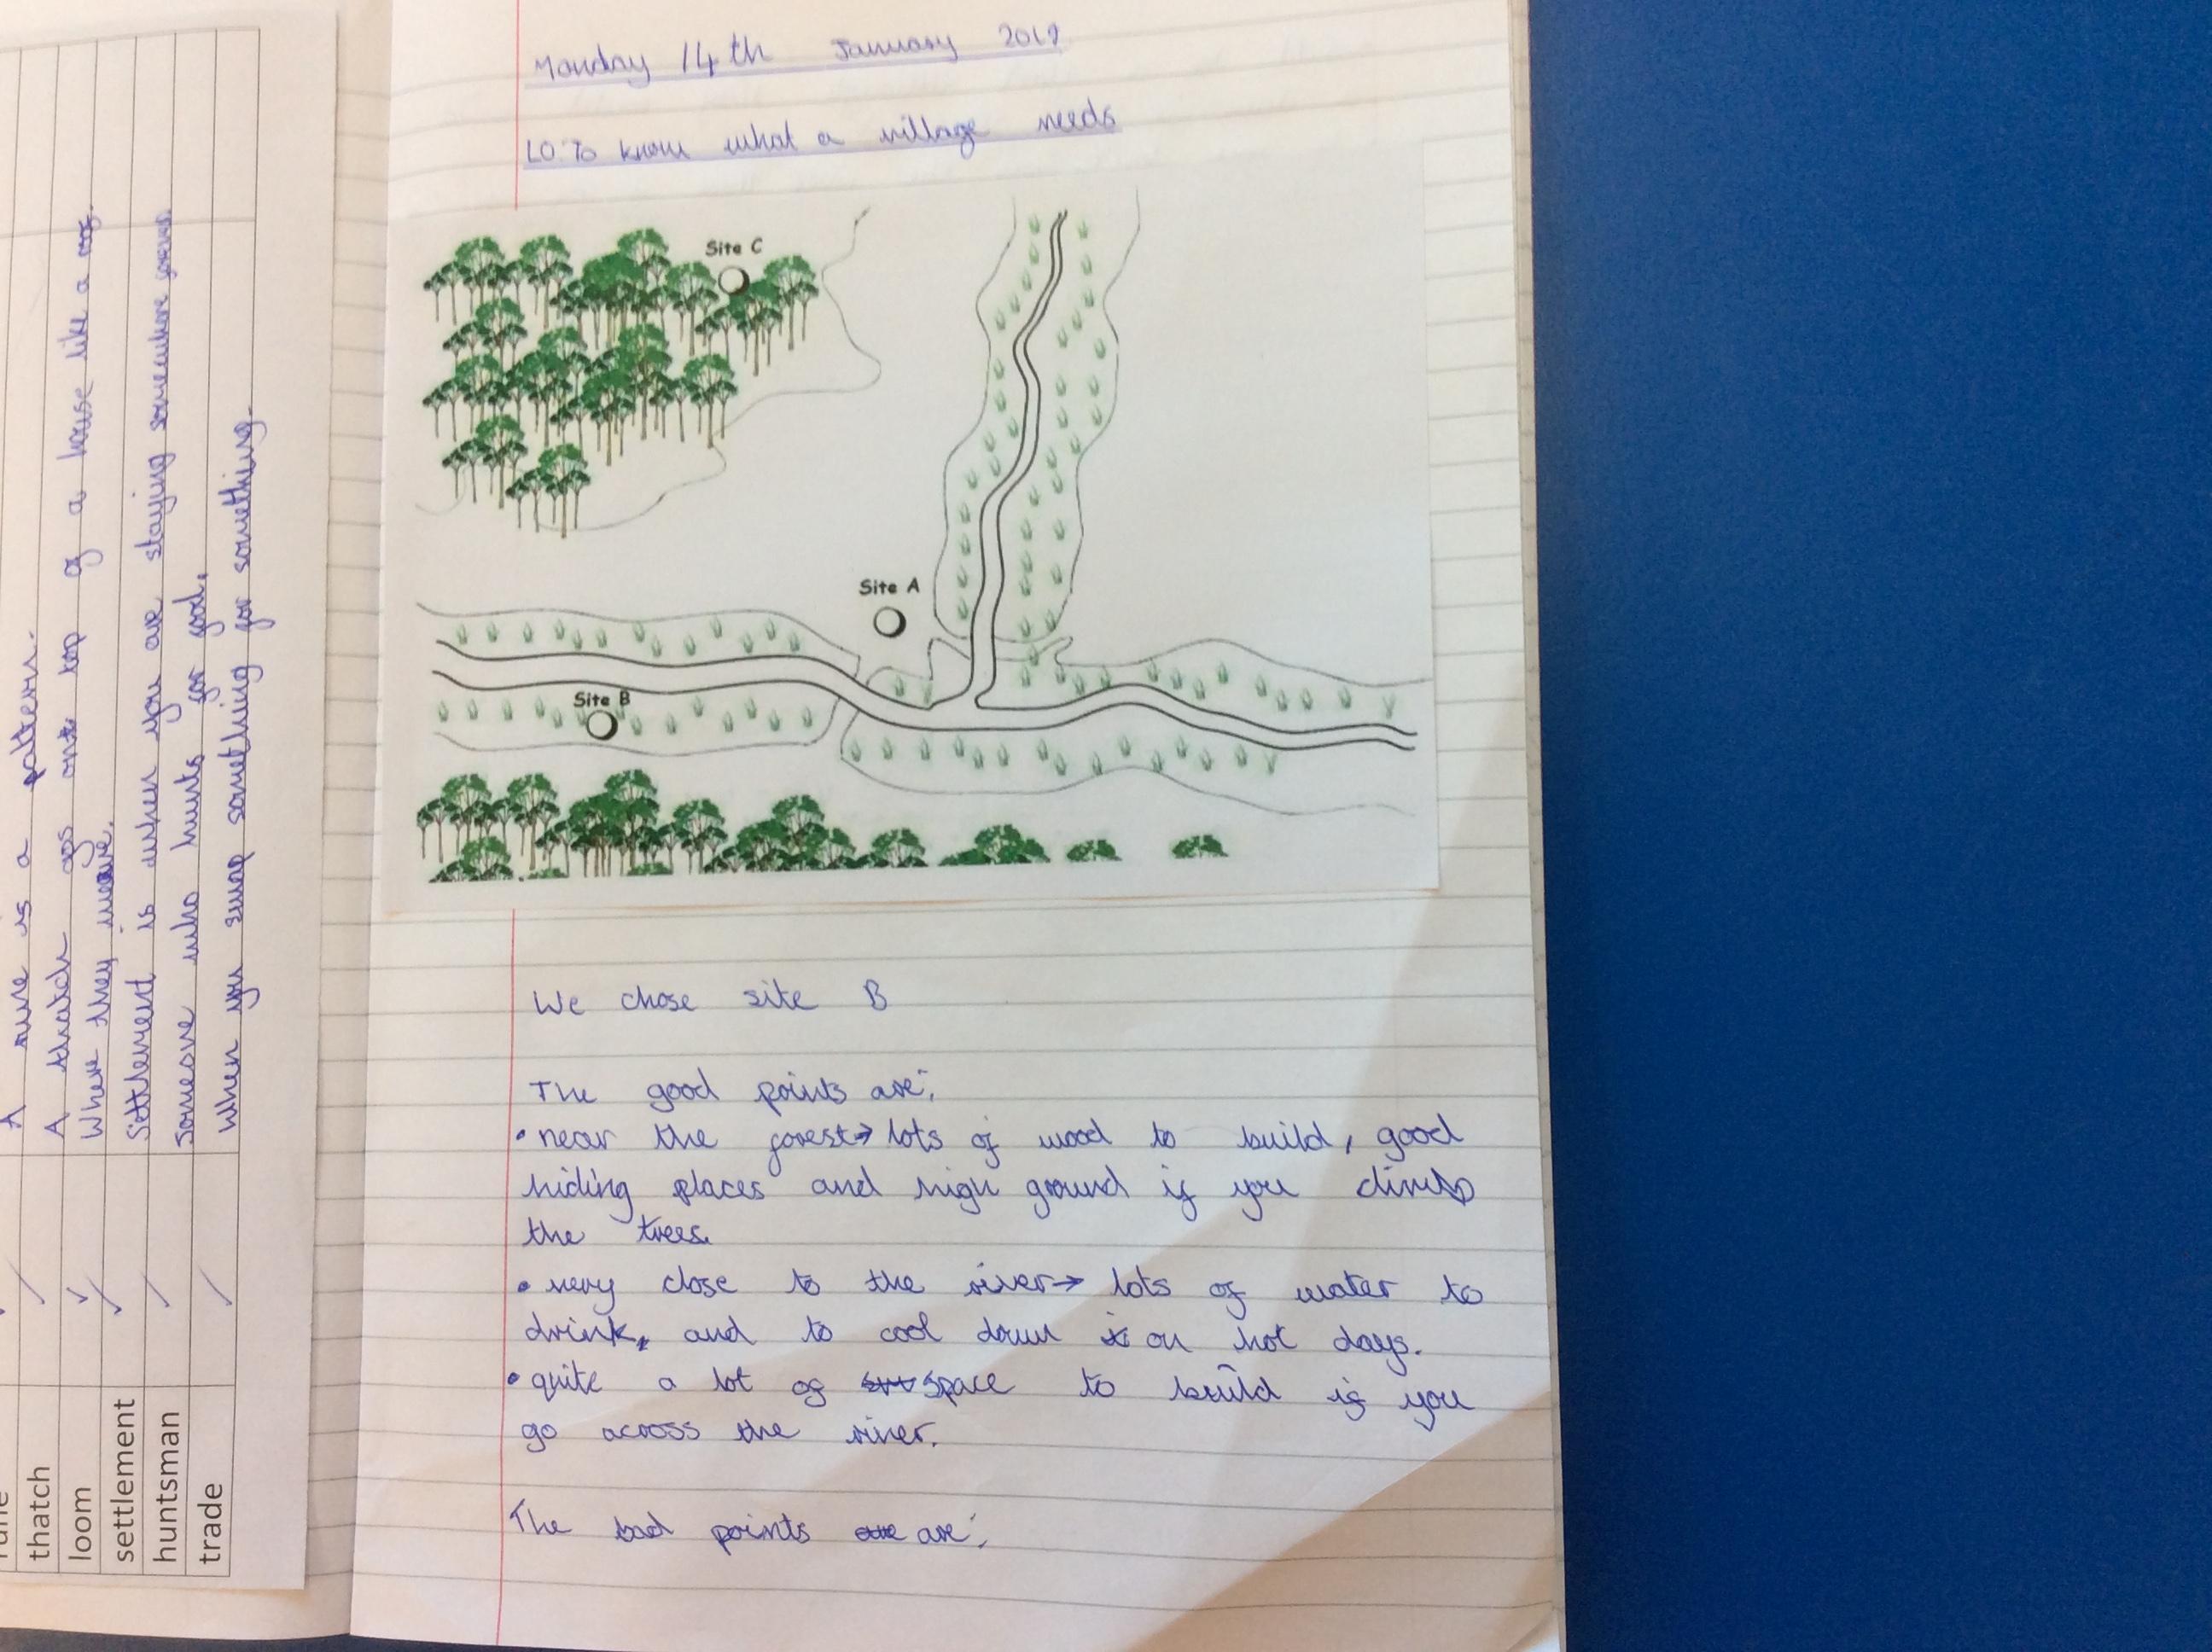 Monday 14th January 2019
LO: To know what a village needs
Site C
Site A
Site B
We chose site B
The good points are:
• near the forest → lots of wood to build, good
hiding places and high ground if you climb
the trees.
• very close to the river → lots of water to
drink, and to cool down on hot days.
• quite a lot of space to build if you
go across the river.
The bad points are:
A rune is a pattern.
thatch A thatch goes onto top of a house like a
loom Where they weave.
settlement Settlement is when you are staying somewhere
huntsman Someone who hunts for food.
trade When you swap something for something.